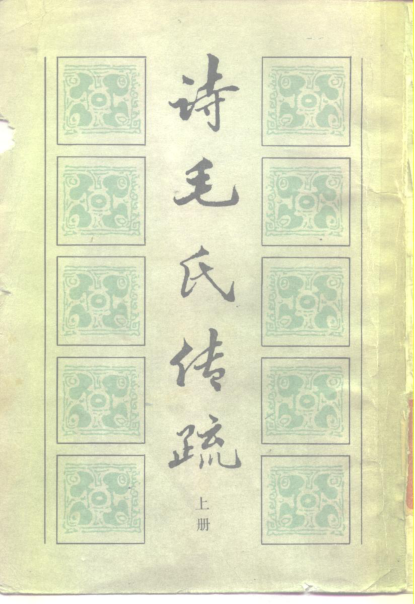 诗毛氏传疏
上册